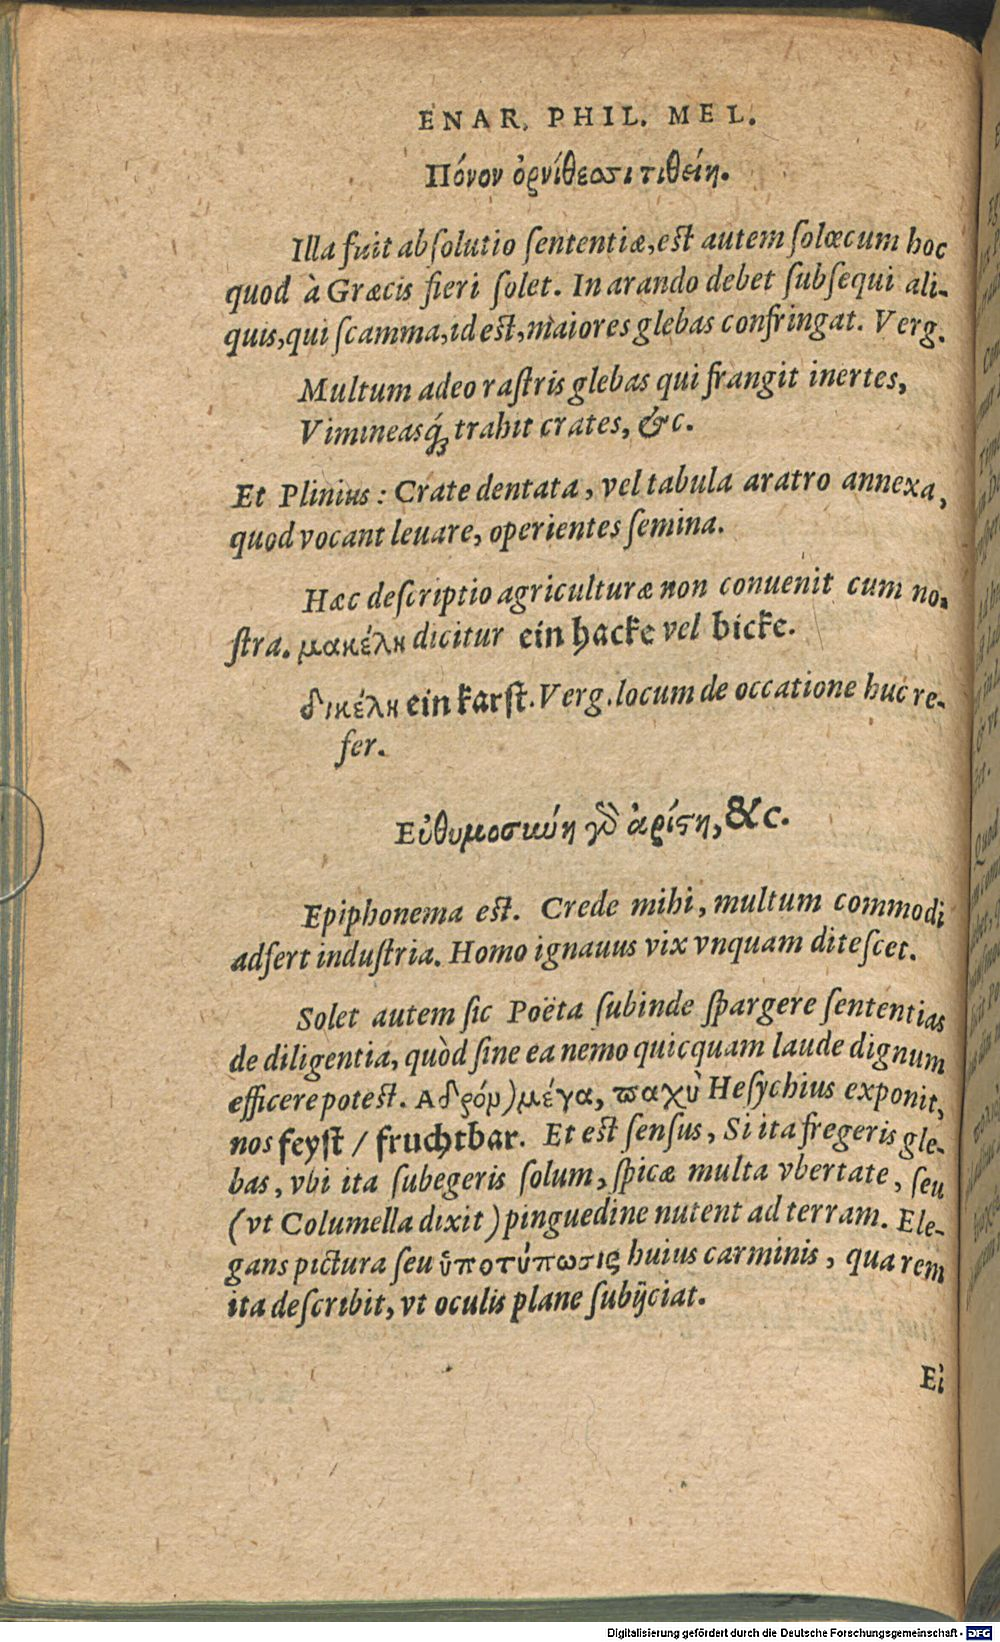 ENAR. PHIL. MEL.
Πόνον ὀρνίθεσσι τιθείη.
Illa fuit abſolutio ſententiæ, eſt autem ſolœcum hoc
quod à Græcis fieri ſolet. In arando debet ſubſequi ali-
quis, qui ſcamma, id eſt, maiores glebas confringat. Verg.
Multum adeo raſtris glebas qui frangit inertes,
Vimineasq́ꝫ trahit crates, &c.
Et Plinius: Crate dentata, vel tabula aratro annexa,
quod vocant leuare, operientes ſemina.
Hæc deſcriptio agriculturæ non conuenit cum no-
ſtra. μακέλη dicitur ein hacke vel bicke.
δικέλη ein karſt. Verg. locum de occatione huc re-
fer.
Εὐθυμοσκύη γὸ ἀρίςη, &c.
Epiphonema eſt. Crede mihi, multum commodi
adfert induſtria. Homo ignauus vix vnquam diteſcet.
Solet autem ſic Poëta ſubinde ſpargere ſententias
de diligentia, quòd ſine ea nemo quicquam laude dignum
efficere poteſt. Αδρόμ) μέγα, παχὺ Heſychius exponit,
nos feyſt / fruchtbar. Et eſt ſenſus, Si ita fregeris gle-
bas, vbi ita ſubegeris ſolum, ſpicæ multa vbertate, ſeu
(vt Columella dixit) pinguedine nutent ad terram. Ele-
gans pictura ſeu ὑποτύπωσις huius carminis, qua rem
ita deſcribit, vt oculis plane ſubijciat.
Εἰ
Digitalisierung gefördert durch die Deutsche Forschungsgemeinschaft - DFG